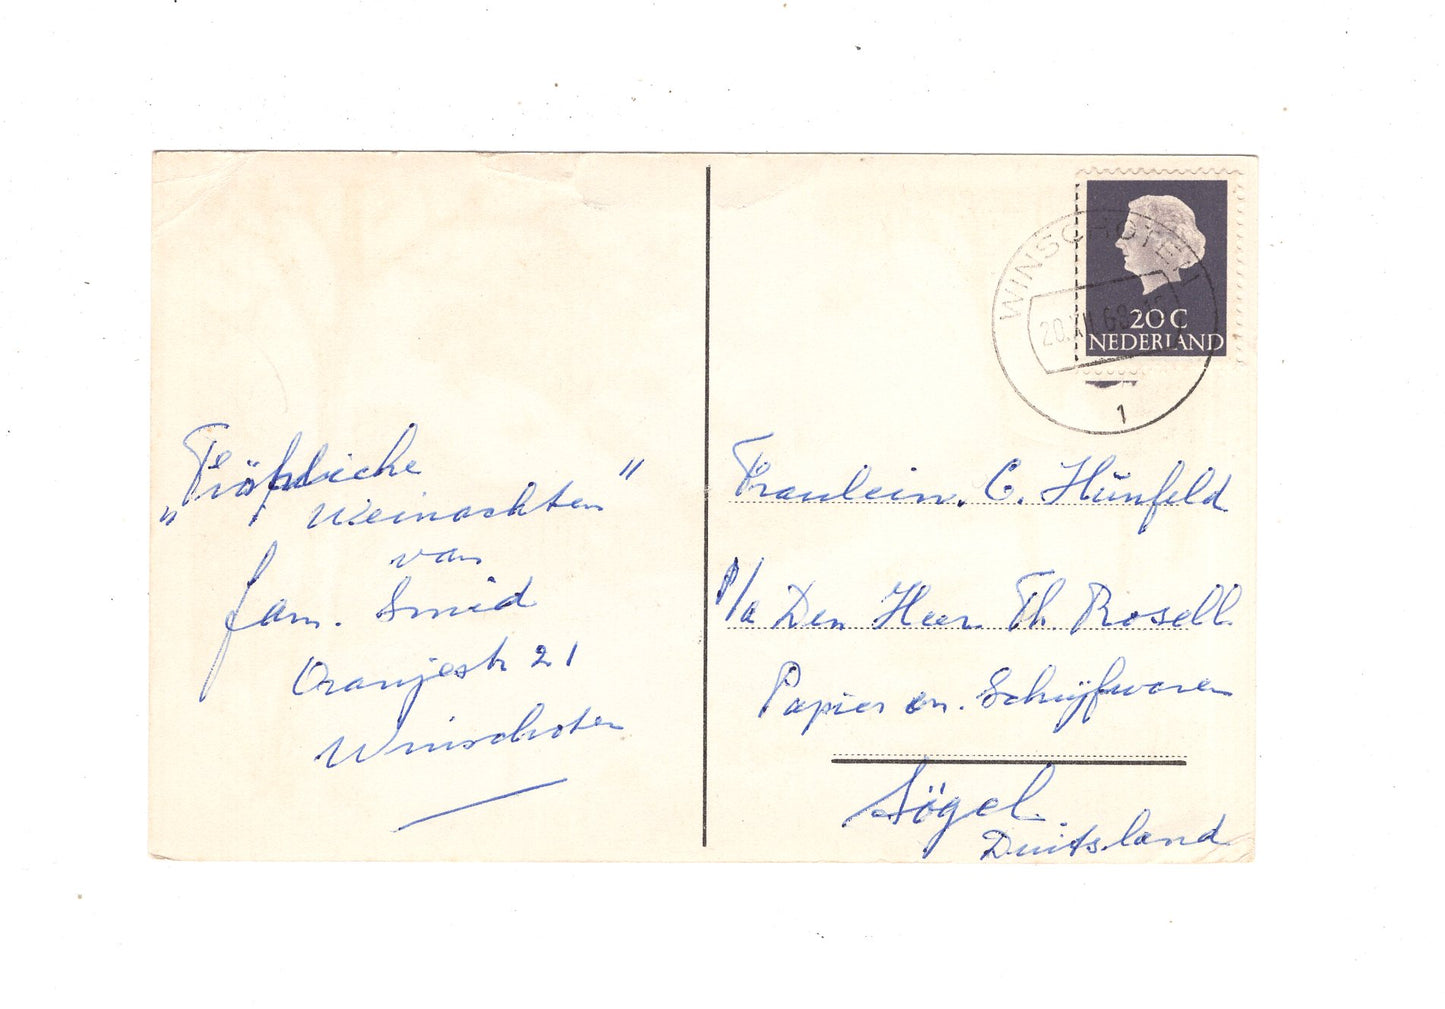 „Fröhliche
Weinachten"
van
fam. Smid
Oranjestr 21
Winschoten
WINSCHOTEN
20.XII.6
1
20 C
NEDERLAND
Fraulein. C. Hünfeld
p/a Den Heer. Th. Rosell.
Papier en. Schrijfwaren
Sögel.
Duitsland